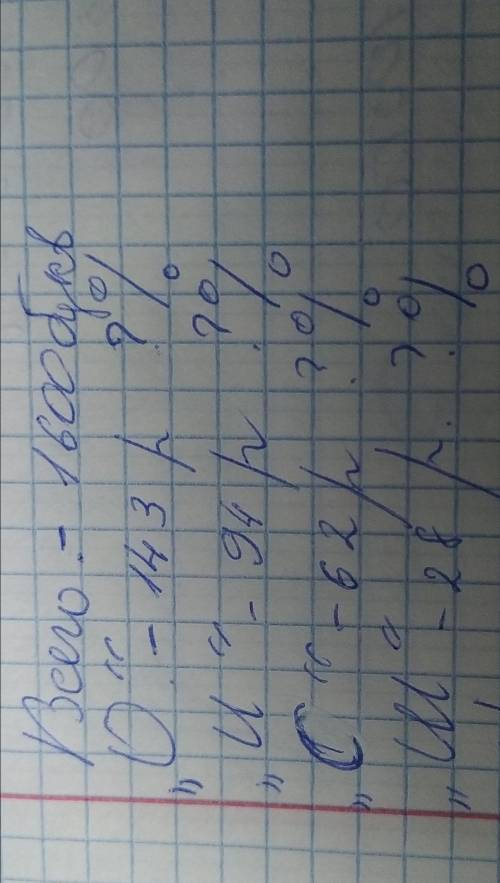 Всего - 1600 букв
„О“ - 143 р ? %
„И“ - 94 р ? %
„С“ - 62 р ? %
- 28 р. ? %